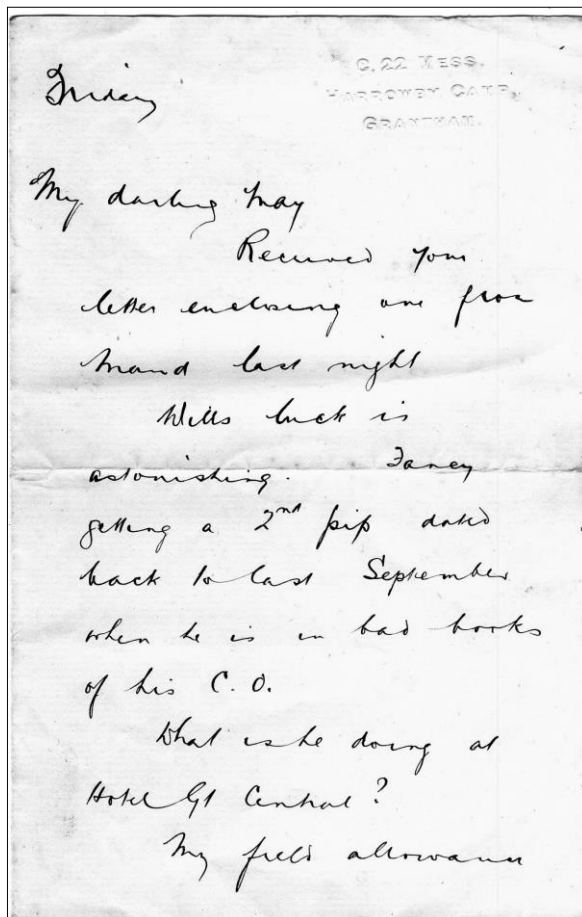 C. 22 MESS.
HARROWBY CAMP,
GRANTHAM.
Friday
My darling May
Received your
letter enclosing one from
Maud last night
Wills luck is
astonishing. Fancy
getting a 2nd pip dated
back to last September
when he is in bad books
of his C.O.
What is he doing at
Hotel Gt Central?
My field allowance